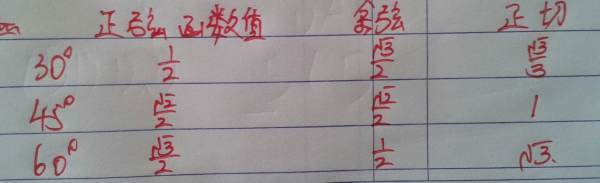 正弦函数值 余弦 正切
30° 1/2 √3/2 √3/3
45° √2/2 √2/2 1
60° √3/2 1/2 √3.